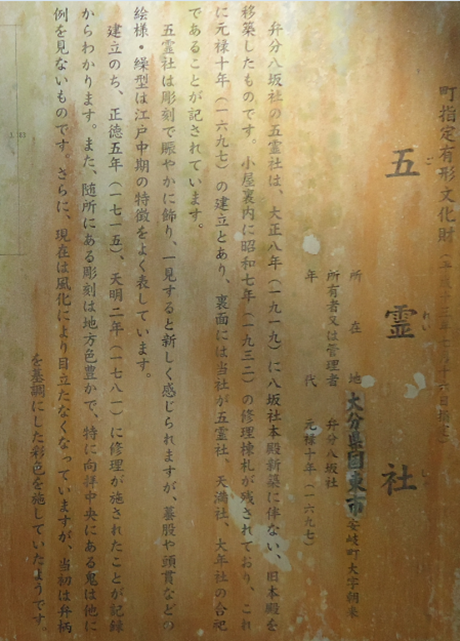 町指定有形文化財
五霊社
ご れい しゃ
所在地 大分県国東市安岐町大字朝来
所有者又は管理者 弁分八坂社
年代 元禄十年(一六九七)
弁分八坂社の五霊社は、大正八年(一九一九)に八坂社本殿新築に伴ない、旧本殿を
移築したものです。小屋裏内に昭和七年(一九三二)の修理棟札が残されており、これ
に元禄十年(一六九七)の建立とあり、裏面には当社が五霊社、天満社、大年社の合祀
であることが記されています。
五霊社は彫刻で賑やかに飾り、一見すると新しく感じられますが、蟇股や頭貫などの
絵様・繰型は江戸中期の特徴をよく表しています。
建立のち、正徳五年(一七一五)、天明二年(一七八一)に修理が施されたことが記録
からわかります。また、随所にある彫刻は地方色豊かで、特に向拝中央にある鬼は他に
例を見ないものです。さらに、現在は風化により目立たなくなっていますが、当初は弁柄
を基調にした彩色を施していたようです。